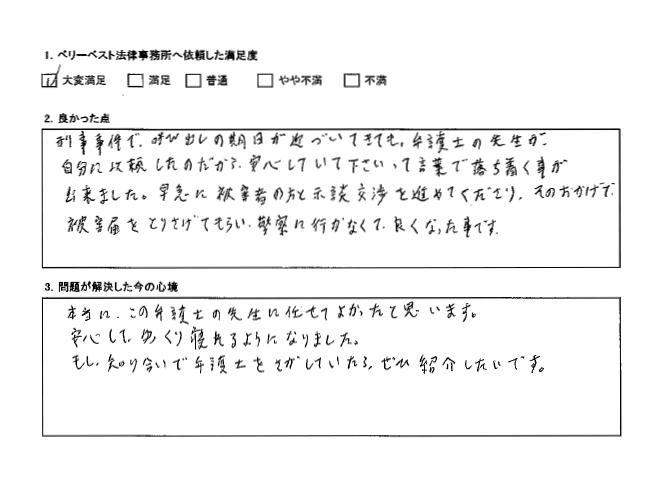 1. ベリーベスト法律事務所へ依頼した満足度
☑ 大変満足 □ 満足 □ 普通 □ やや不満 □ 不満
2. 良かった点
刑事事件で、呼び出しの期日が近づいてきても、弁護士の先生が、
自分に依頼したのだから、安心していて下さいって言葉で落ち着く事が
出来ました。早急に被害者の方と示談交渉を進めてくださり、そのおかげで
被害届をとりさげてもらい、警察に行かなくて、良くなった事です。
3. 問題が解決した今の心境
本当に、この弁護士の先生に任せてよかったと思います。
安心して、ゆっくり寝れるようになりました。
もし、知り合いで弁護士をさがしていたら、ぜひ紹介したいです。